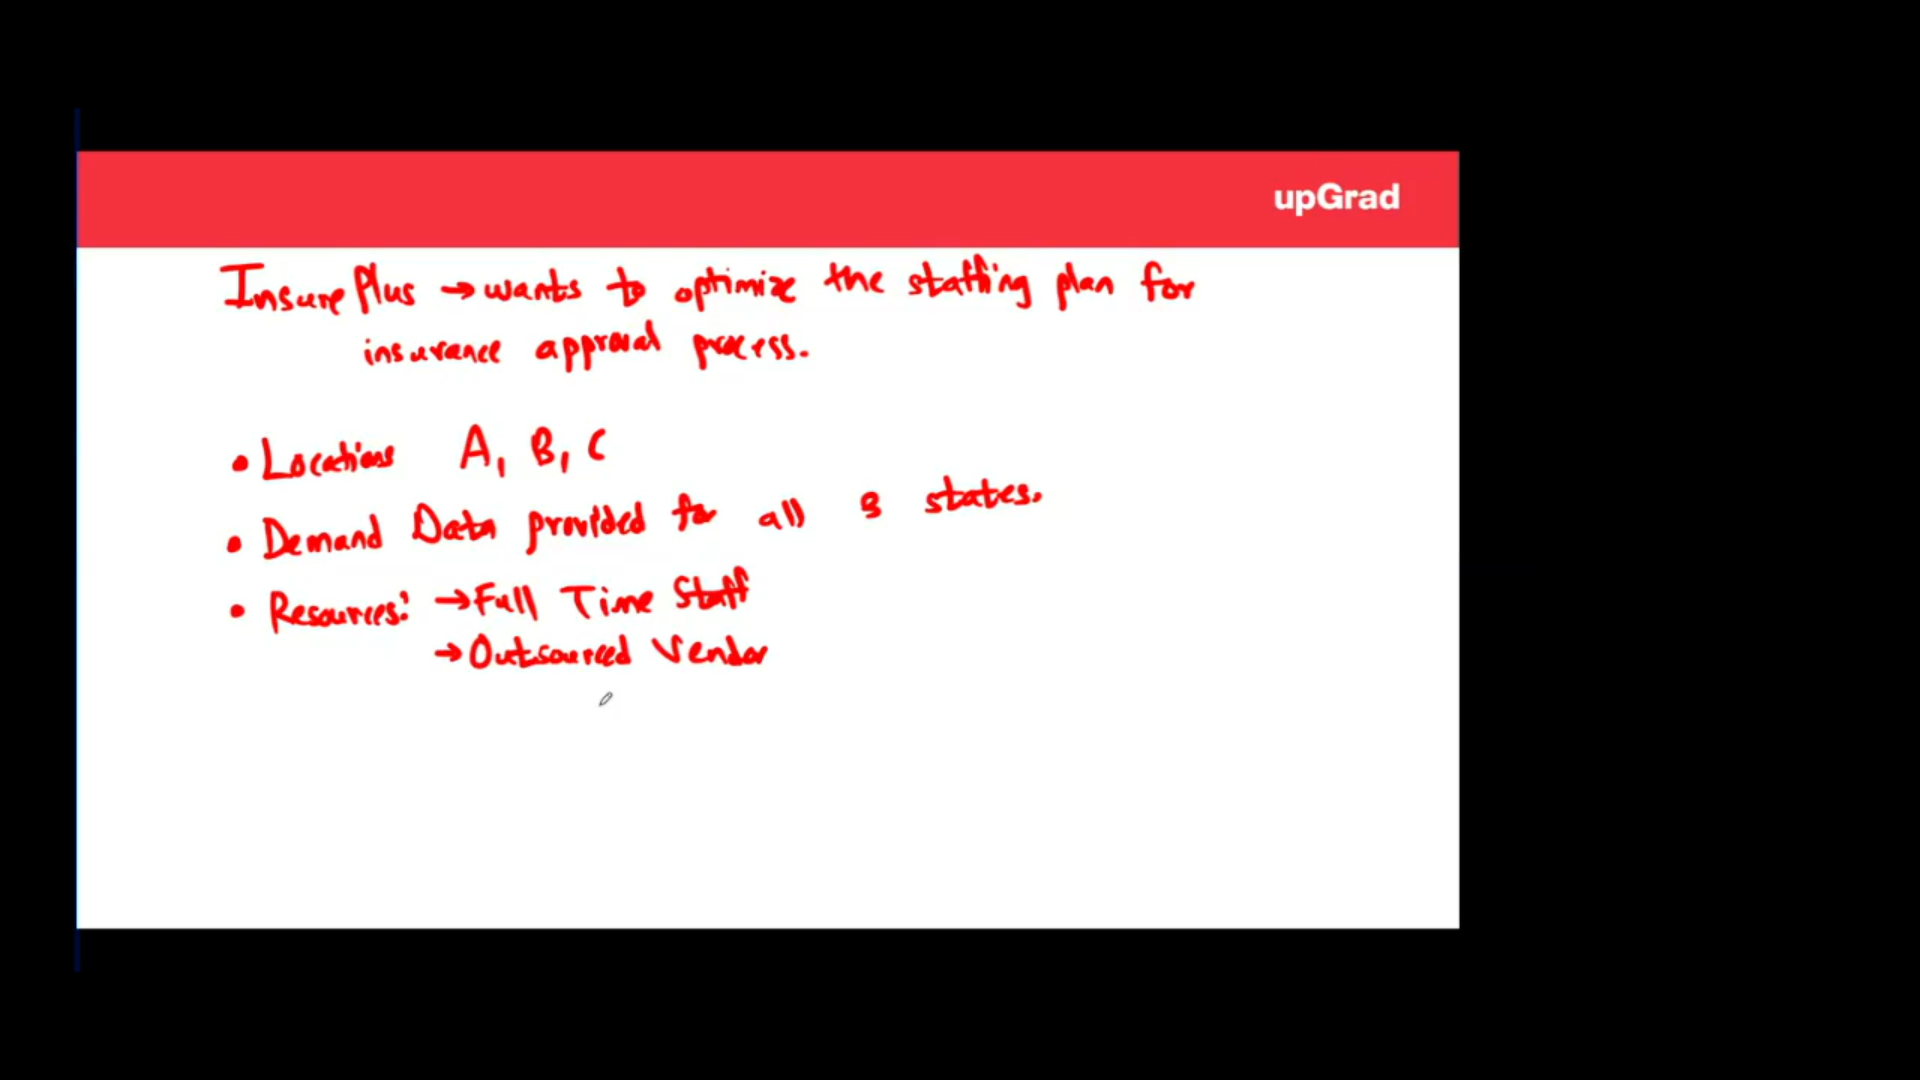 upGrad
InsurePlus → wants to optimize the staffing plan for
insurance approval process.
• Locations A, B, C
• Demand Data provided for all 3 states.
• Resources: → Full Time Staff
→ Outsourced Vendor